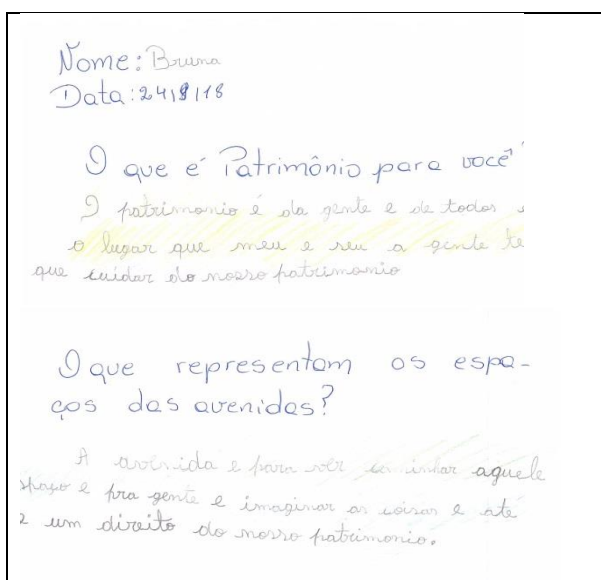 Nome: Bruna
Data: 24/8/18
O que é Patrimônio para você
O patrimonio é da gente e de todos
o lugar que meu e seu a gente te
que cuidar do nosso patrimonio
O que representam os espa-
ços das avenidas?
A avenida e para ver caminhar aquele
spaço e pra gente e imaginar as coisas e até
um direito do nosso patrimonio.